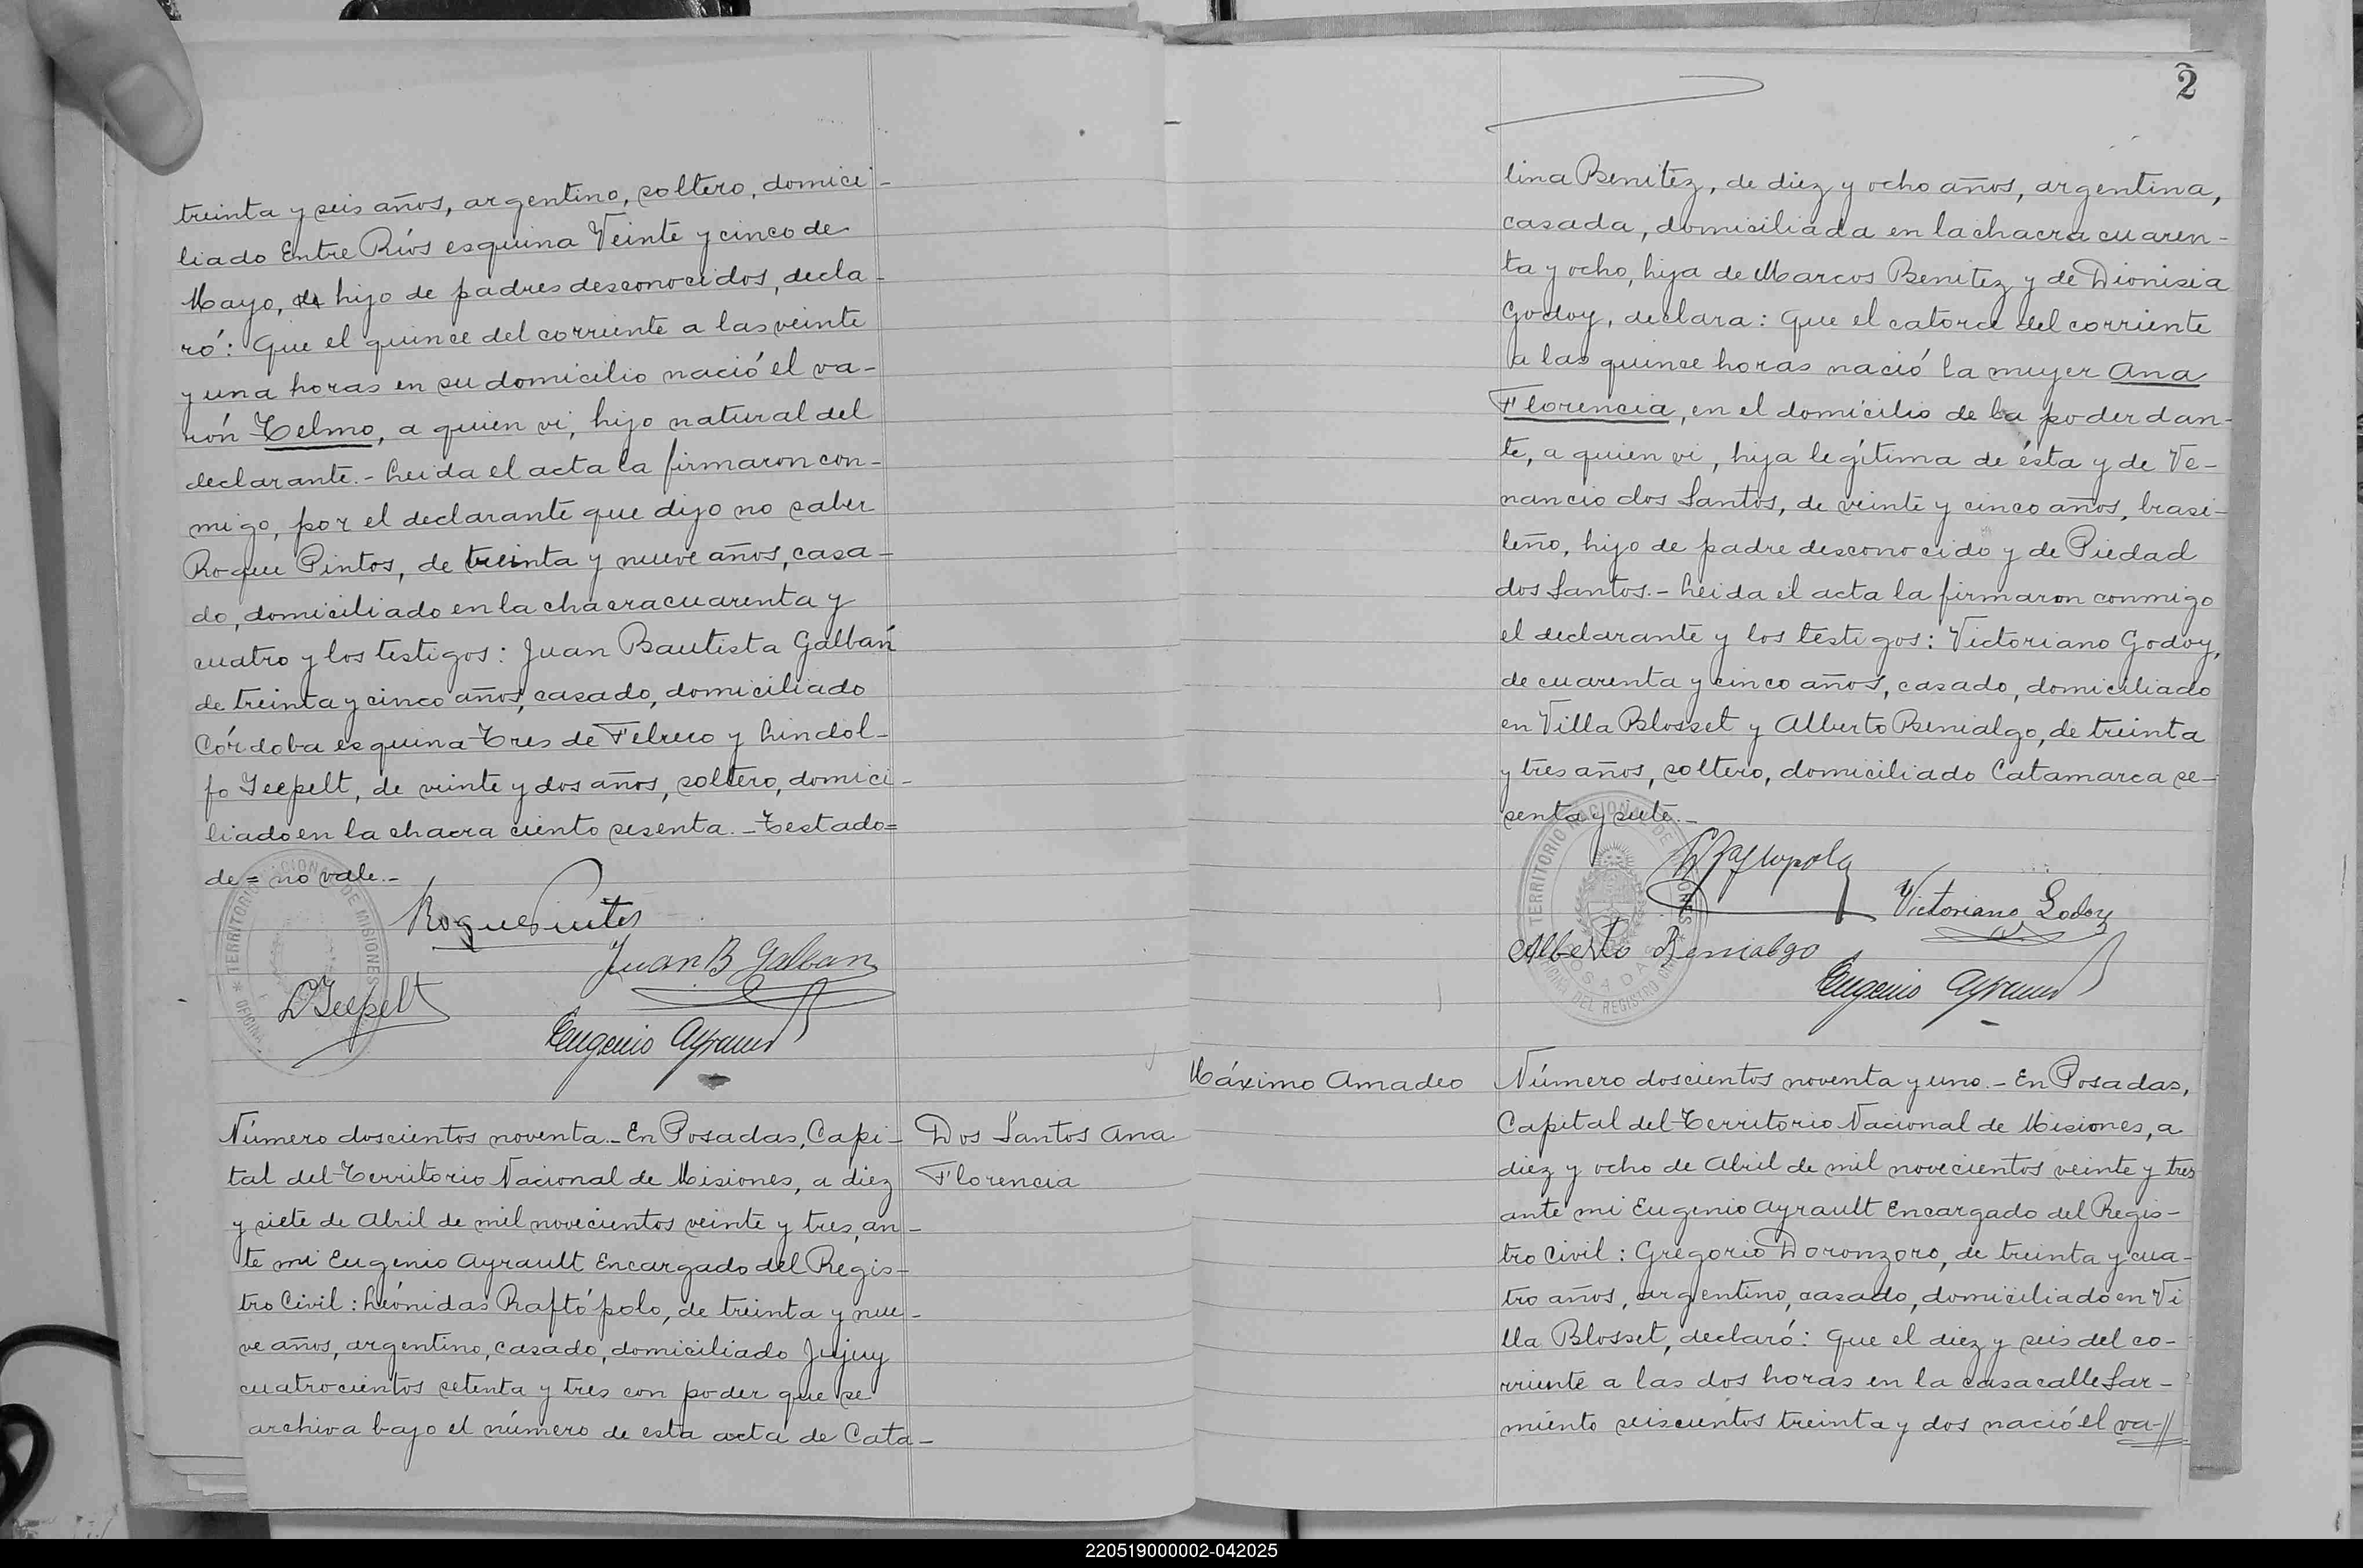 treinta y seis años, argentino, soltero, domici-
liado Entre Ríos esquina Veinte y cinco de
Mayo, de hijo de padres desconocidos, decla-
ró: Que el quince del corriente a las veinte
y una horas en su domicilio nació el va-
rón Telmo, a quien vi, hijo natural del
declarante.- Leida el acta la firmaron con-
migo, por el declarante que dijo no saber
Roque Pintos, de treinta y nueve años, casa-
do, domiciliado en la chacra cuarenta y
cuatro y los testigos: Juan Bautista Galbán
de treinta y cinco años, casado, domiciliado
Córdoba esquina Tres de Febrero y Lindol-
fo Seepelt, de veinte y dos años, soltero, domici-
liado en la chacra ciento sesenta.- Testado=
de= no vale.-
TERRITORIO NACIONAL DE MISIONES
OFICINA
Roque Pintos
Juan B Galban
L Seepelt
Eugenio Ayrault
Número doscientos noventa.- En Posadas, Capi-
tal del Territorio Nacional de Misiones, a diez
y siete de Abril de mil novecientos veinte y tres, an-
te mi Eugenio Ayrault Encargado del Regis-
tro Civil: Leónidas Raftópolo, de treinta y nue-
ve años, argentino, casado, domiciliado Jujuy
cuatrocientos setenta y tres con poder que se
archiva bajo el número de esta acta de Cata-
Dos Santos Ana
Florencia
2
lina Benitez, de diez y ocho años, argentina,
casada, domiciliada en la chacra cuaren-
ta y ocho, hija de Marcos Benitez y de Dionisia
Godoy, declara: Que el catorce del corriente
a las quince horas nació la mujer Ana
Florencia, en el domicilio de la poderdan-
te, a quien vi, hija legítima de ésta y de Ve-
nancio dos Santos, de veinte y cinco años, brasi-
leño, hijo de padre desconocido y de Piedad
dos Santos.- Leida el acta la firmaron conmigo
el declarante y los testigos: Victoriano Godoy,
de cuarenta y cinco años, casado, domiciliado
en Villa Blosset y Alberto Benialgo, de treinta
y tres años, soltero, domiciliado Catamarca se-
senta y siete.-
TERRITORIO NACIONAL DE MISIONES
POSADAS
OFICINA DEL REGISTRO CIVIL
Victoriano Godoy
Alberto Benialgo
Eugenio Ayrault
Máximo Amadeo
Número doscientos noventa y uno.- En Posadas,
Capital del Territorio Nacional de Misiones, a
diez y ocho de Abril de mil novecientos veinte y tres
ante mi Eugenio Ayrault Encargado del Regis-
tro Civil: Gregorio Doronzoro, de treinta y cua-
tro años, argentino, casado, domiciliado en Vi
lla Blosset, declaró: Que el diez y seis del co-
rriente a las dos horas en la casa calle Sar-
miento seiscientos treinta y dos nació el va-//
220519000002-042025